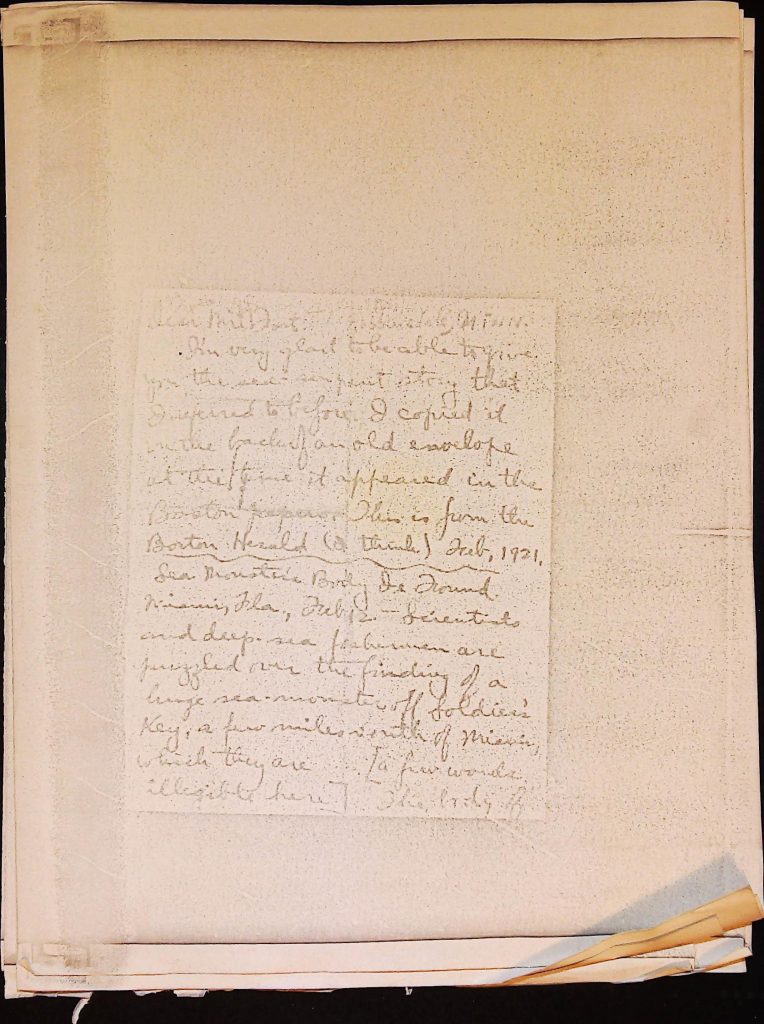 Dear Mr. Fort: Minn.
I'm very glad to be able to give
you the sea-serpent story that
I referred to before. I copied it
on the back of an old envelope
at the time it appeared in the
Boston papers. This is from the
Boston Herald (I think) Feb, 1921.
Sea Monster's Body Is Found
Miami, Fla., Feb 12. - Scientists
and deep-sea fishermen are
puzzled over the finding of a
huge sea-monster off Soldier's
Key, a few miles south of Miami,
which they are [a few words
illegible here] The body of